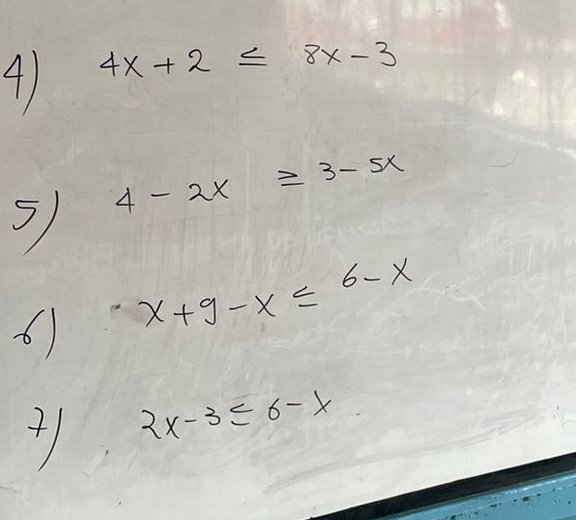 4) 4x + 2 ≤ 8x - 3
5) 4 - 2x ≥ 3 - 5x
6) x + 9 - x ≤ 6 - x
7) 2x - 3 ≤ 6 - x